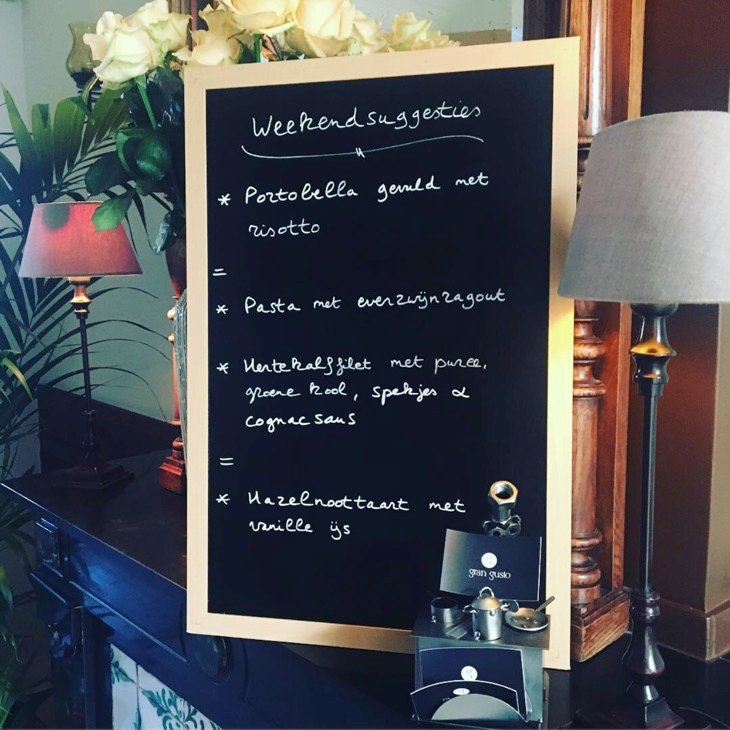 Weekendsuggesties
* Portobella gevuld met
risotto
=
* Pasta met everzwijnragout
* Hertekalffilet met puree,
groene kool, spekjes &
cognacsaus
=
* Hazelnoottaart met
vanille ijs
gran gusto